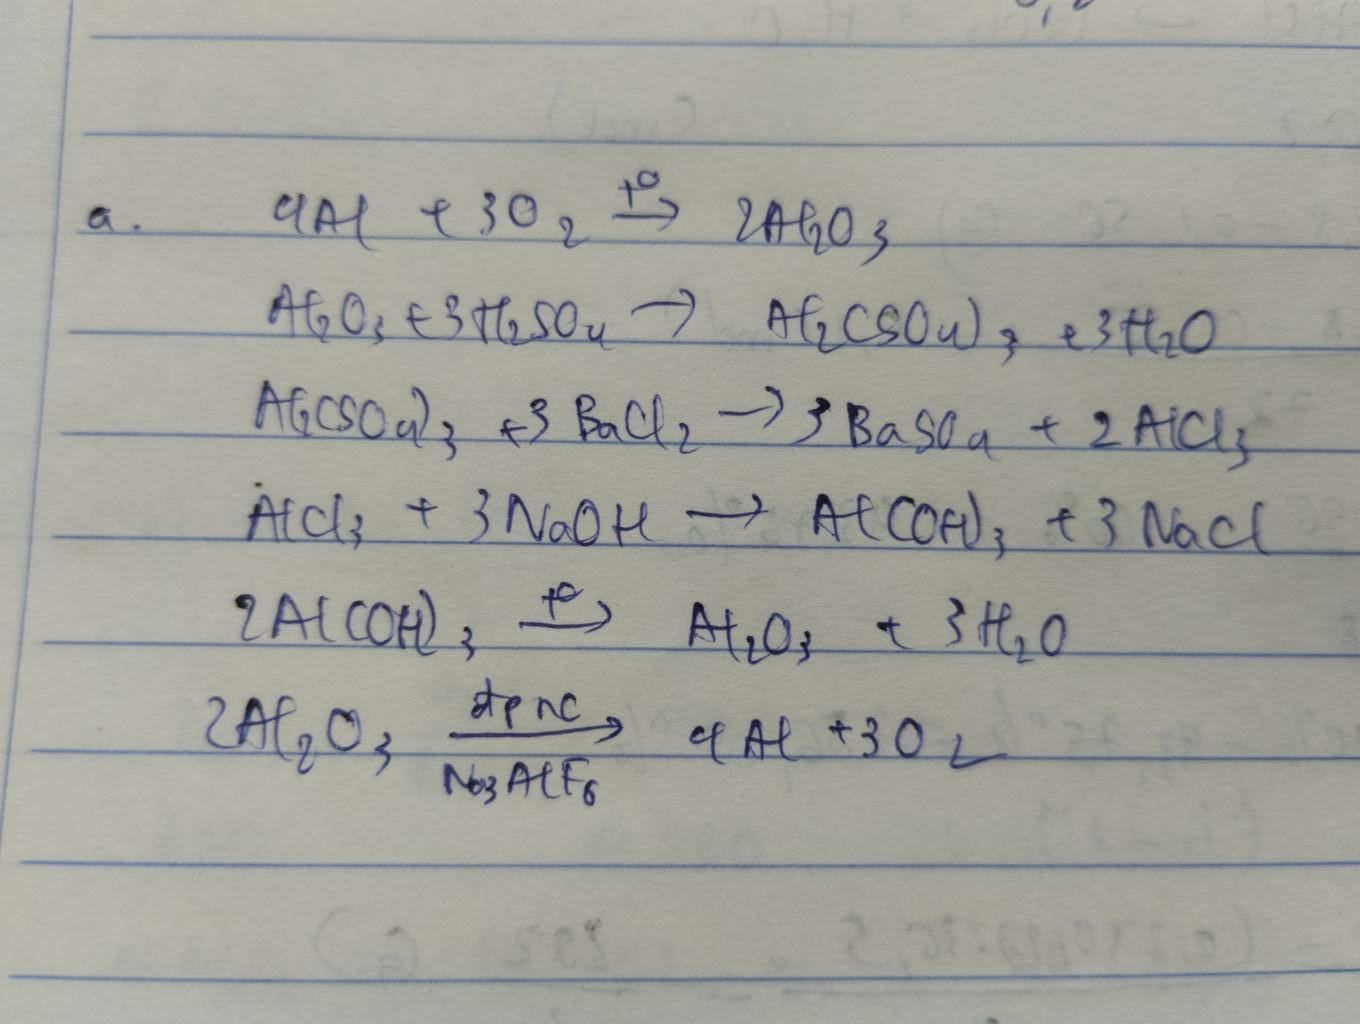 a. 4Al + 3O₂ →(t°) 2Al₂O₃
Al₂O₃ + 3H₂SO₄ → Al₂(SO₄)₃ + 3H₂O
Al₂(SO₄)₃ + 3BaCl₂ → 3BaSO₄ + 2AlCl₃
AlCl₃ + 3NaOH → Al(OH)₃ + 3NaCl
2Al(OH)₃ →(t°) Al₂O₃ + 3H₂O
2Al₂O₃ →(đpnc, Na₃AlF₆) 4Al + 3O₂